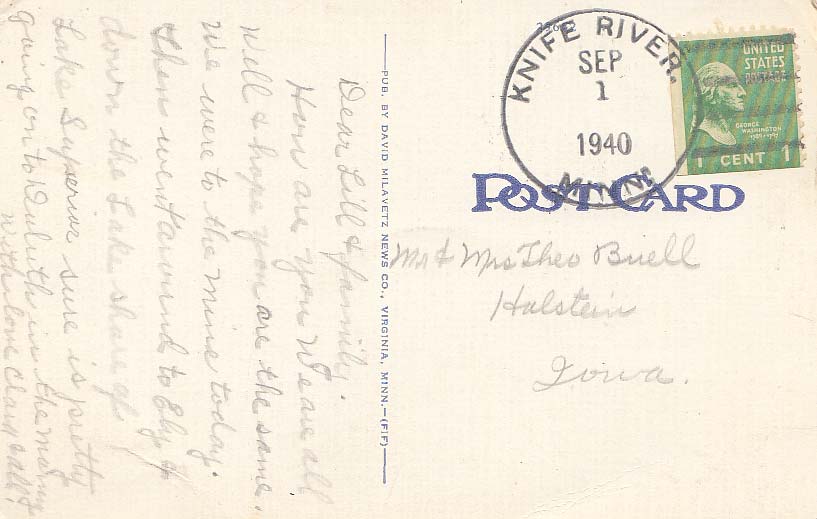 Dear Lill & family.
How are you We are all
well & hope you are the same.
We were to the mine today.
then went around to Ely &
down the Lake share of
Lake Superior sure is pretty
going on to Duluth in the morning
with love
PUB. BY DAVID MILAVETZ NEWS CO., VIRGINIA, MINN.—(FIF)
KNIFE RIVER.
SEP
1
1940
MINN.
UNITED
STATES
POSTAGE
GEORGE
WASHINGTON
1 CENT 1
POST CARD
Mr & Mrs Theo Buell
Holstein
Iowa.